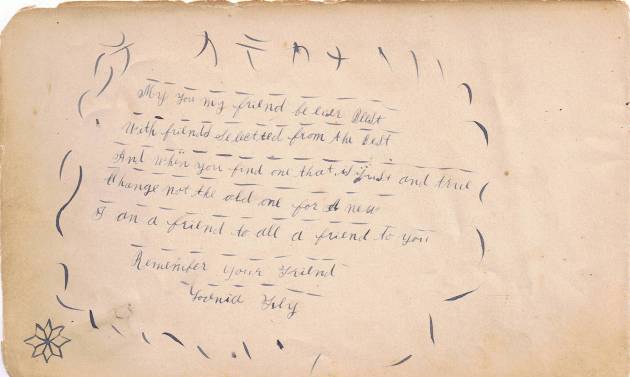 My you my friend be ever blest
With friends selected from the best
And when you find one that is just and true
Change not the old one for a new
I an a friend to all a friend to you
Remember your Friend